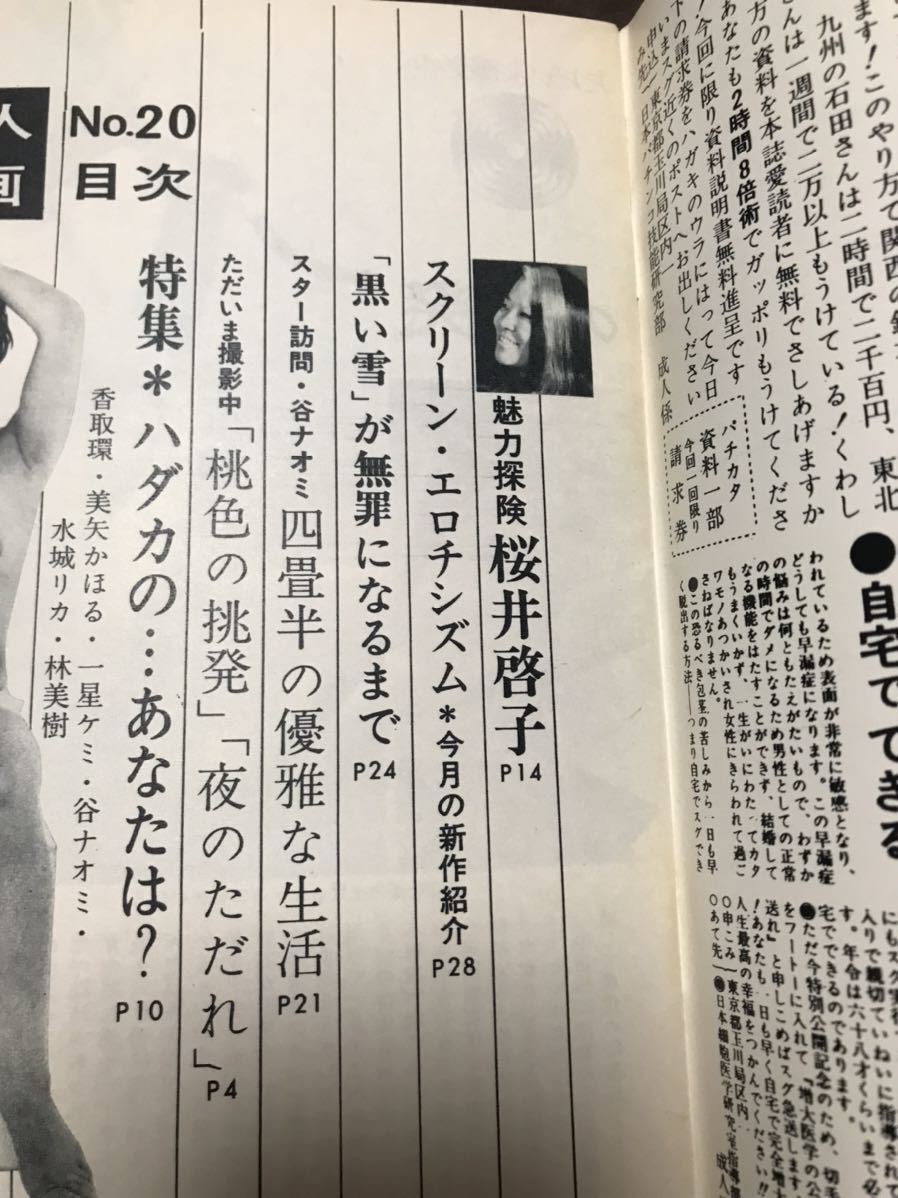 す！このやり方で関西の
九州の石田さんは二時間で二千百円、東北
さんは一週間で二万以上もうけている！くわし
方の資料を本誌愛読者に無料でさしあげますか
あなたも2時間8倍術でガッポリもうけてくださ
今回に限り資料説明書無料進呈です
下の請求券をハガキのウラにはって今日
いますグ近くのポストへお出しください
東京都玉川局区内
日本パチンコ技能研究部 成人係
パチカタ
資料一部
今回一回限り
請求券
●自宅でできる
われているため表面が非常に敏感となり、
どうしても早漏症になります。この早漏症
の悩みは何ともたえがたいもので、わずか
の時間でダメになるため男性としての正常
なる機能をはたすことができず、結婚して
もうまくいかず、一生がいにわたってカタ
ワモノあつかいされ女性にきらわれて過ご
さねばなりません。
●この恐るべき包茎の苦しみから一日も早
く脱出する方法──つまり自宅でスグでき
にもスグ実行
入りで親切ていねいに指導されて
す。年令は六十八才くらいまで必
宅でできるのであります。
●ただ今特別公開記念のため、切手
をフートーに入れて『増大医学の公
送れ』と申しこめばスグ急送します
！あなたも一日も早く自宅で完全増
人生最高の幸福をつかんでください!!
○申こみ 東京都玉川局区内
○あて先 日本細胞医学研究室指導部 成人
魅力探険 桜井啓子 P14
スクリーン・エロチシズム＊今月の新作紹介 P28
「黒い雪」が無罪になるまで P24
スター訪問・谷ナオミ 四畳半の優雅な生活 P21
ただいま撮影中「桃色の挑発」「夜のただれ」 P4
特集＊ハダカの…あなたは？ P10
香取環・美矢かほる・一星ケミ・谷ナオミ・
水城リカ・林美樹
No.20
目次
人
画